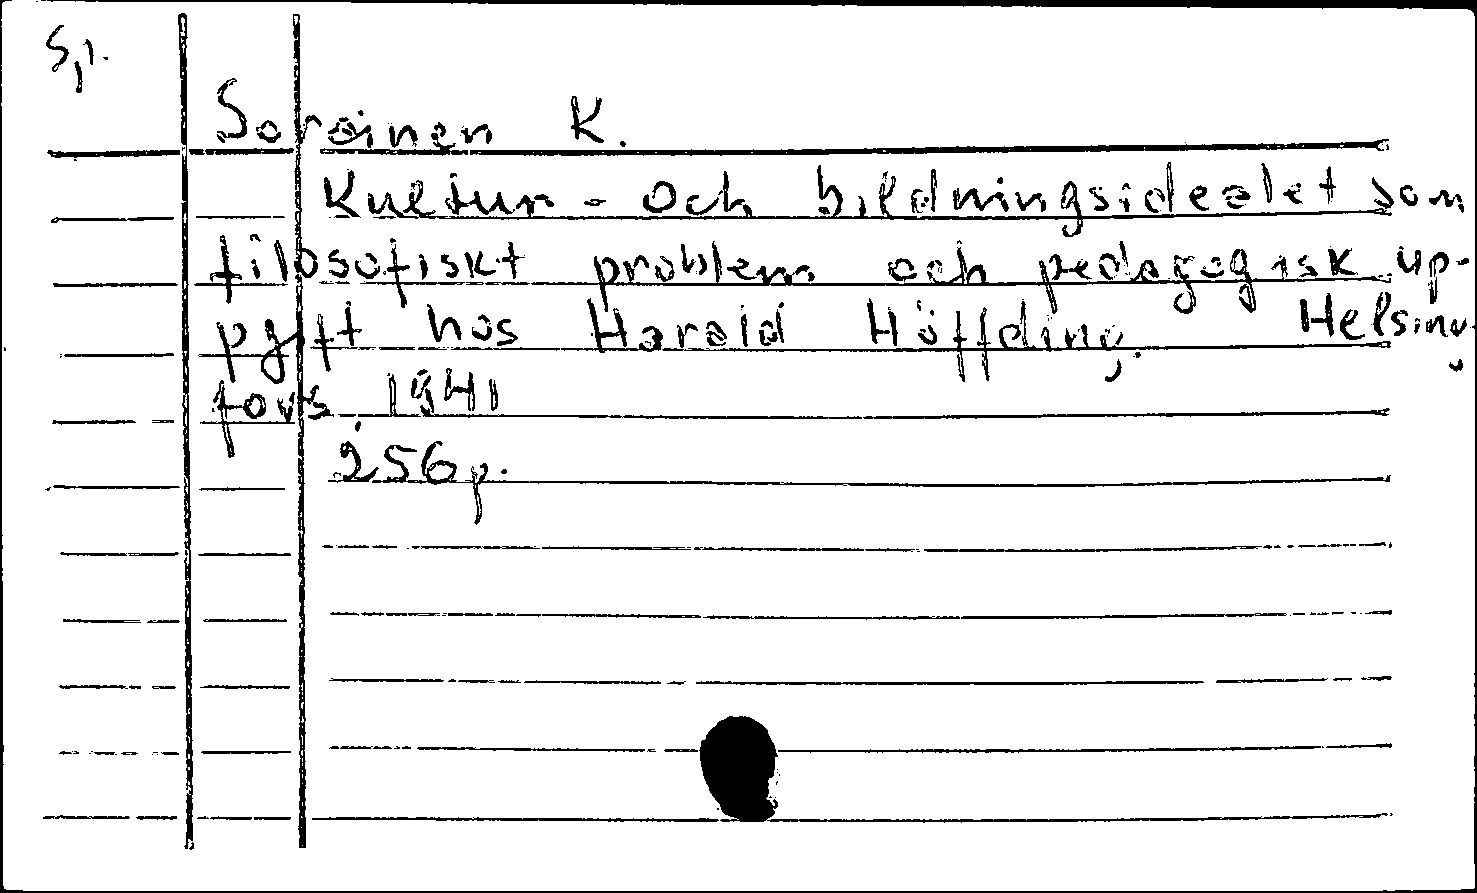 S,1.
Soroinen K.
Kultur- och bildningsidealet som
filosofiskt problem och pedagogisk up-
pgift hos Harald Höffding. Helsing-
fors 1941
256 p.